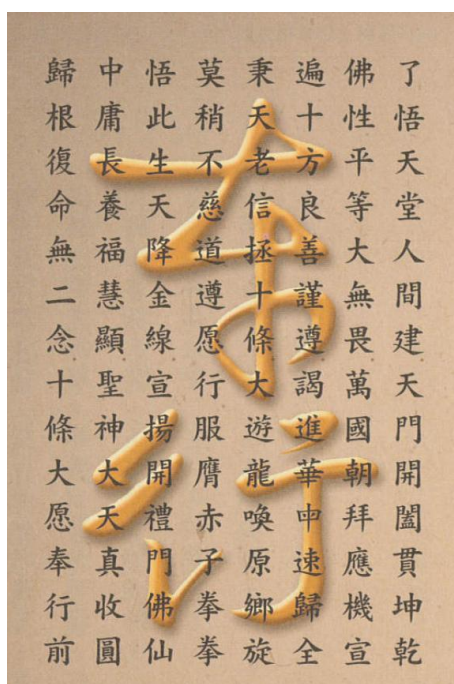 了悟天堂人間建天門開闔貫坤乾
佛性平等大無畏萬國朝拜應機宣
遍十方良善謹遵謁進華中速歸全
秉天老信拯十條大遊龍喚原鄉旋
莫稍不慈道遵愿行服膺赤子拳拳
悟此生天降金線宣揚開禮門佛仙
中庸長養福慧顯聖神大天真收圓
歸根復命無二念十條大愿奉行前
奉行